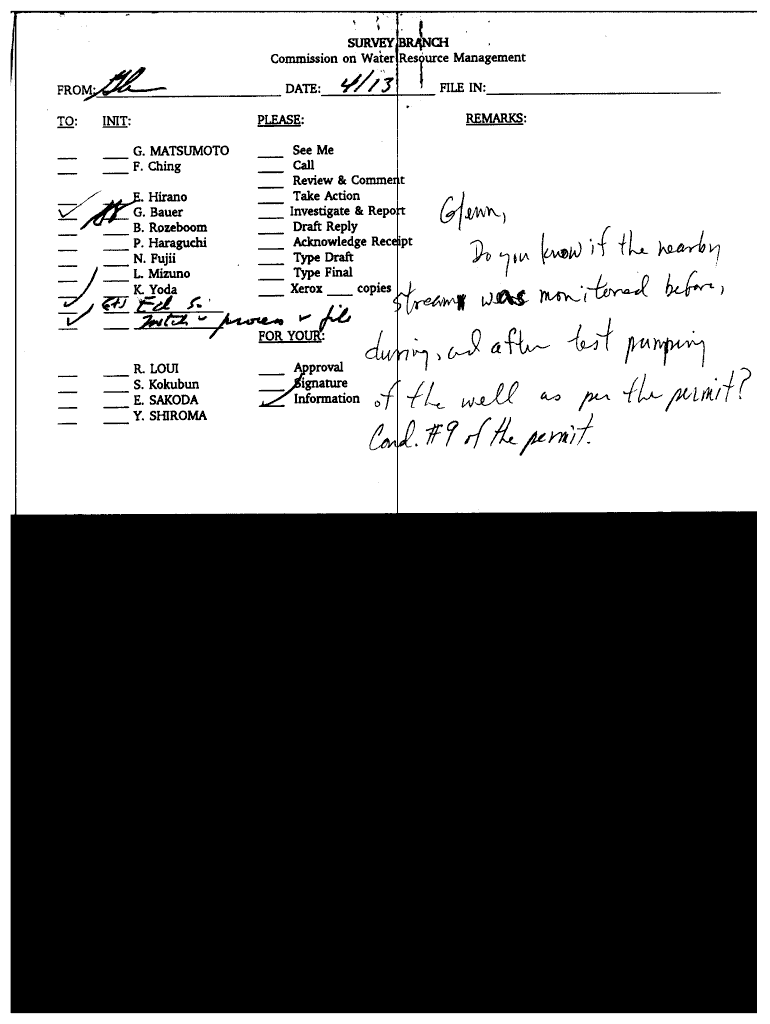 SURVEY BRANCH
Commission on Water Resource Management
FROM: DATE: 4/13 FILE IN:
TO: INIT: PLEASE: REMARKS:
G. MATSUMOTO See Me
F. Ching Call
Review & Comment
E. Hirano Take Action
G. Bauer Investigate & Report
B. Rozeboom Draft Reply
P. Haraguchi Acknowledge Receipt
N. Fujii Type Draft
L. Mizuno Type Final
K. Yoda Xerox copies
Ed S.
Mitch - process file
FOR YOUR:
R. LOUI Approval
S. Kokubun Signature
E. SAKODA Information
Y. SHIROMA
Glenn,
Do you know if the nearby
stream was monitored before,
during, and after test pumping
of the well as per the permit?
Cond. #9 of the permit.